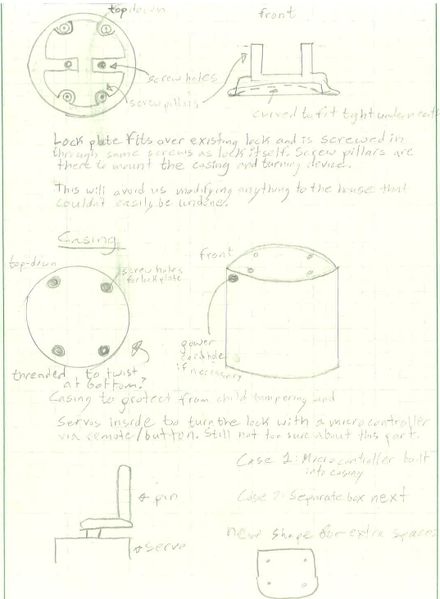 top-down
front
screw holes
screw pillars
curved to fit tight underneath
Lock plate fits over existing lock and is screwed in
through same screws as lock itself. Screw pillars are
there to mount the casing and turning device.
This will avoid us modifying anything to the house that
couldn't easily be undone.
Casing
top-down
screw holes
for lock plate
front
power
cord hole
if necessary
thrended to twist
at bottom?
Casing to protect from child tampering and
Servos inside to turn the lock with a microcontroller
via remote/button. Still not for sure about this part.
Case 1: Microcontroller built
into casing
Case 2: Separate box next
pin
servo
new shape for extra space